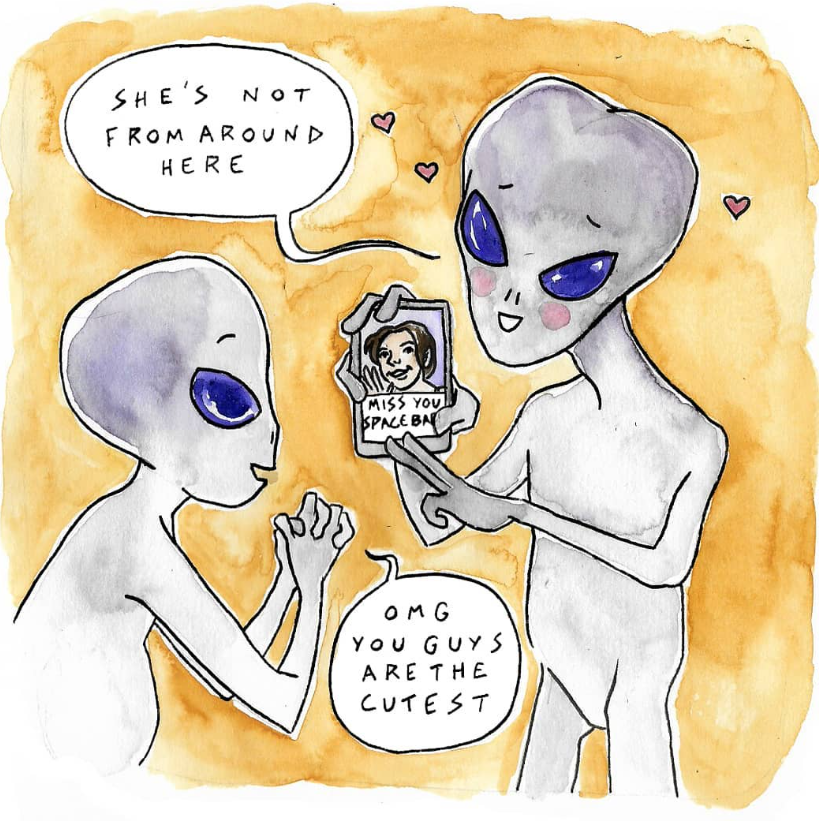 SHE'S NOT
FROM AROUND
HERE
MISS YOU
SPACE BA
OMG
YOU GUYS
ARE THE
CUTEST